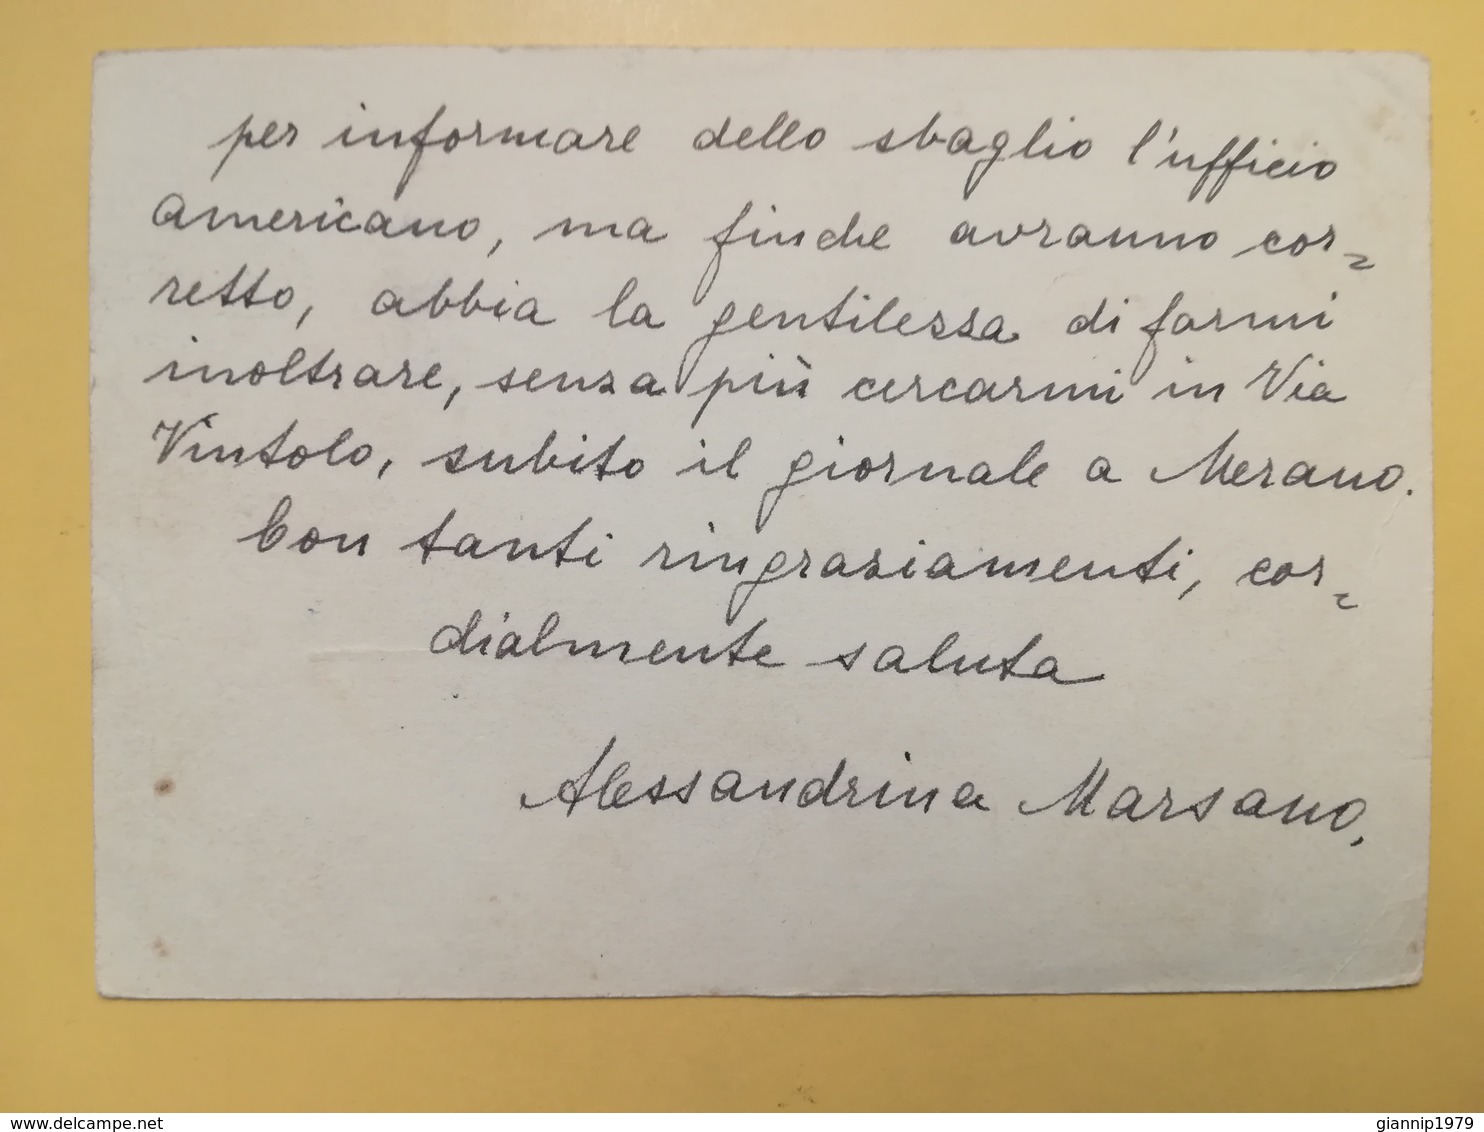 per informare dello sbaglio l'ufficio
americano, ma finche avranno cor-
retto, abbia la gentilezza di farmi
inoltrare, senza più cercarmi in Via
Vintolo, subito il giornale a Merano.
Con tanti ringraziamenti, cor-
dialmente saluta
Alessandrina Marsano,
www.delcampe.net
giannip1979